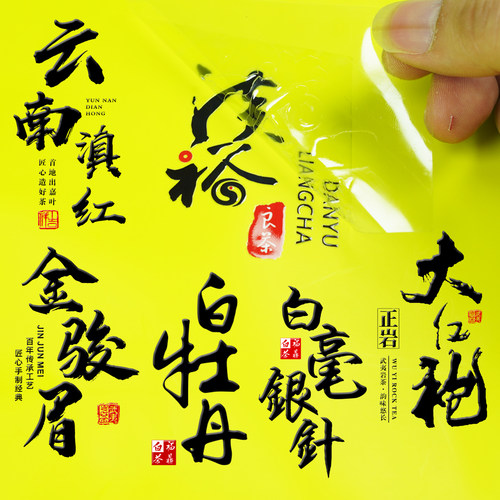 云南滇红
YUN NAN
DIAN
HONG
首地出嘉叶
匠心造好茶
良茶
DANYU
LIANGCHA
金骏眉
JIN JUN MEI
百年传承工艺
匠心手制经典
白牡丹
福鼎
白茶
白毫銀針
福鼎
白茶
大红袍
正岩
WU YI ROCK TEA
武夷岩茶·韵味悠长